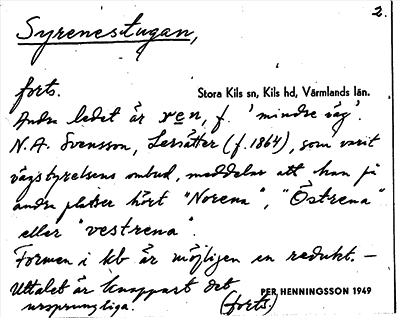 2.
Syrenestugan,
forts.
Stora Kils sn, Kils hd, Värmlands län.
Andra ledet är ren, f. 'mindre väg'.
N.A. Svensson, Lersätter (f. 1864), som varit
vägstyrelsens ombud, meddelar att han på
andra platser hört "Norena", "Östrena"
eller "vestrena".
Formen i kb är möjligen en redukt. —
Uttalet är knappast det
ursprungliga.
(forts.)
PER HENNINGSSON 1949